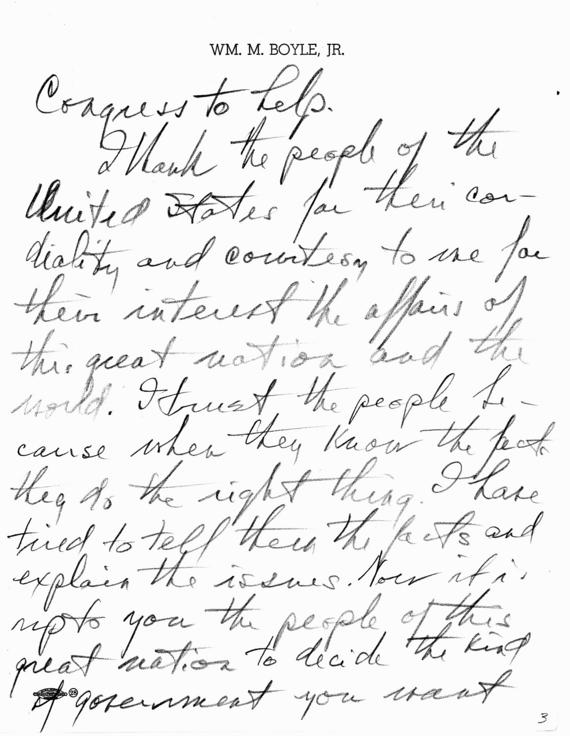 WM. M. BOYLE, JR.
Congress to help.
I thank the people of the
United States for their cor-
diality and courtesy to me for
their interest the affairs of
this great nation and the
world. I trust the people be-
cause when they know the facts
they do the right thing. I have
tried to tell them the facts and
explain the issues. Now it is
up to you the people of this
great nation to decide the kind
of government you want
3